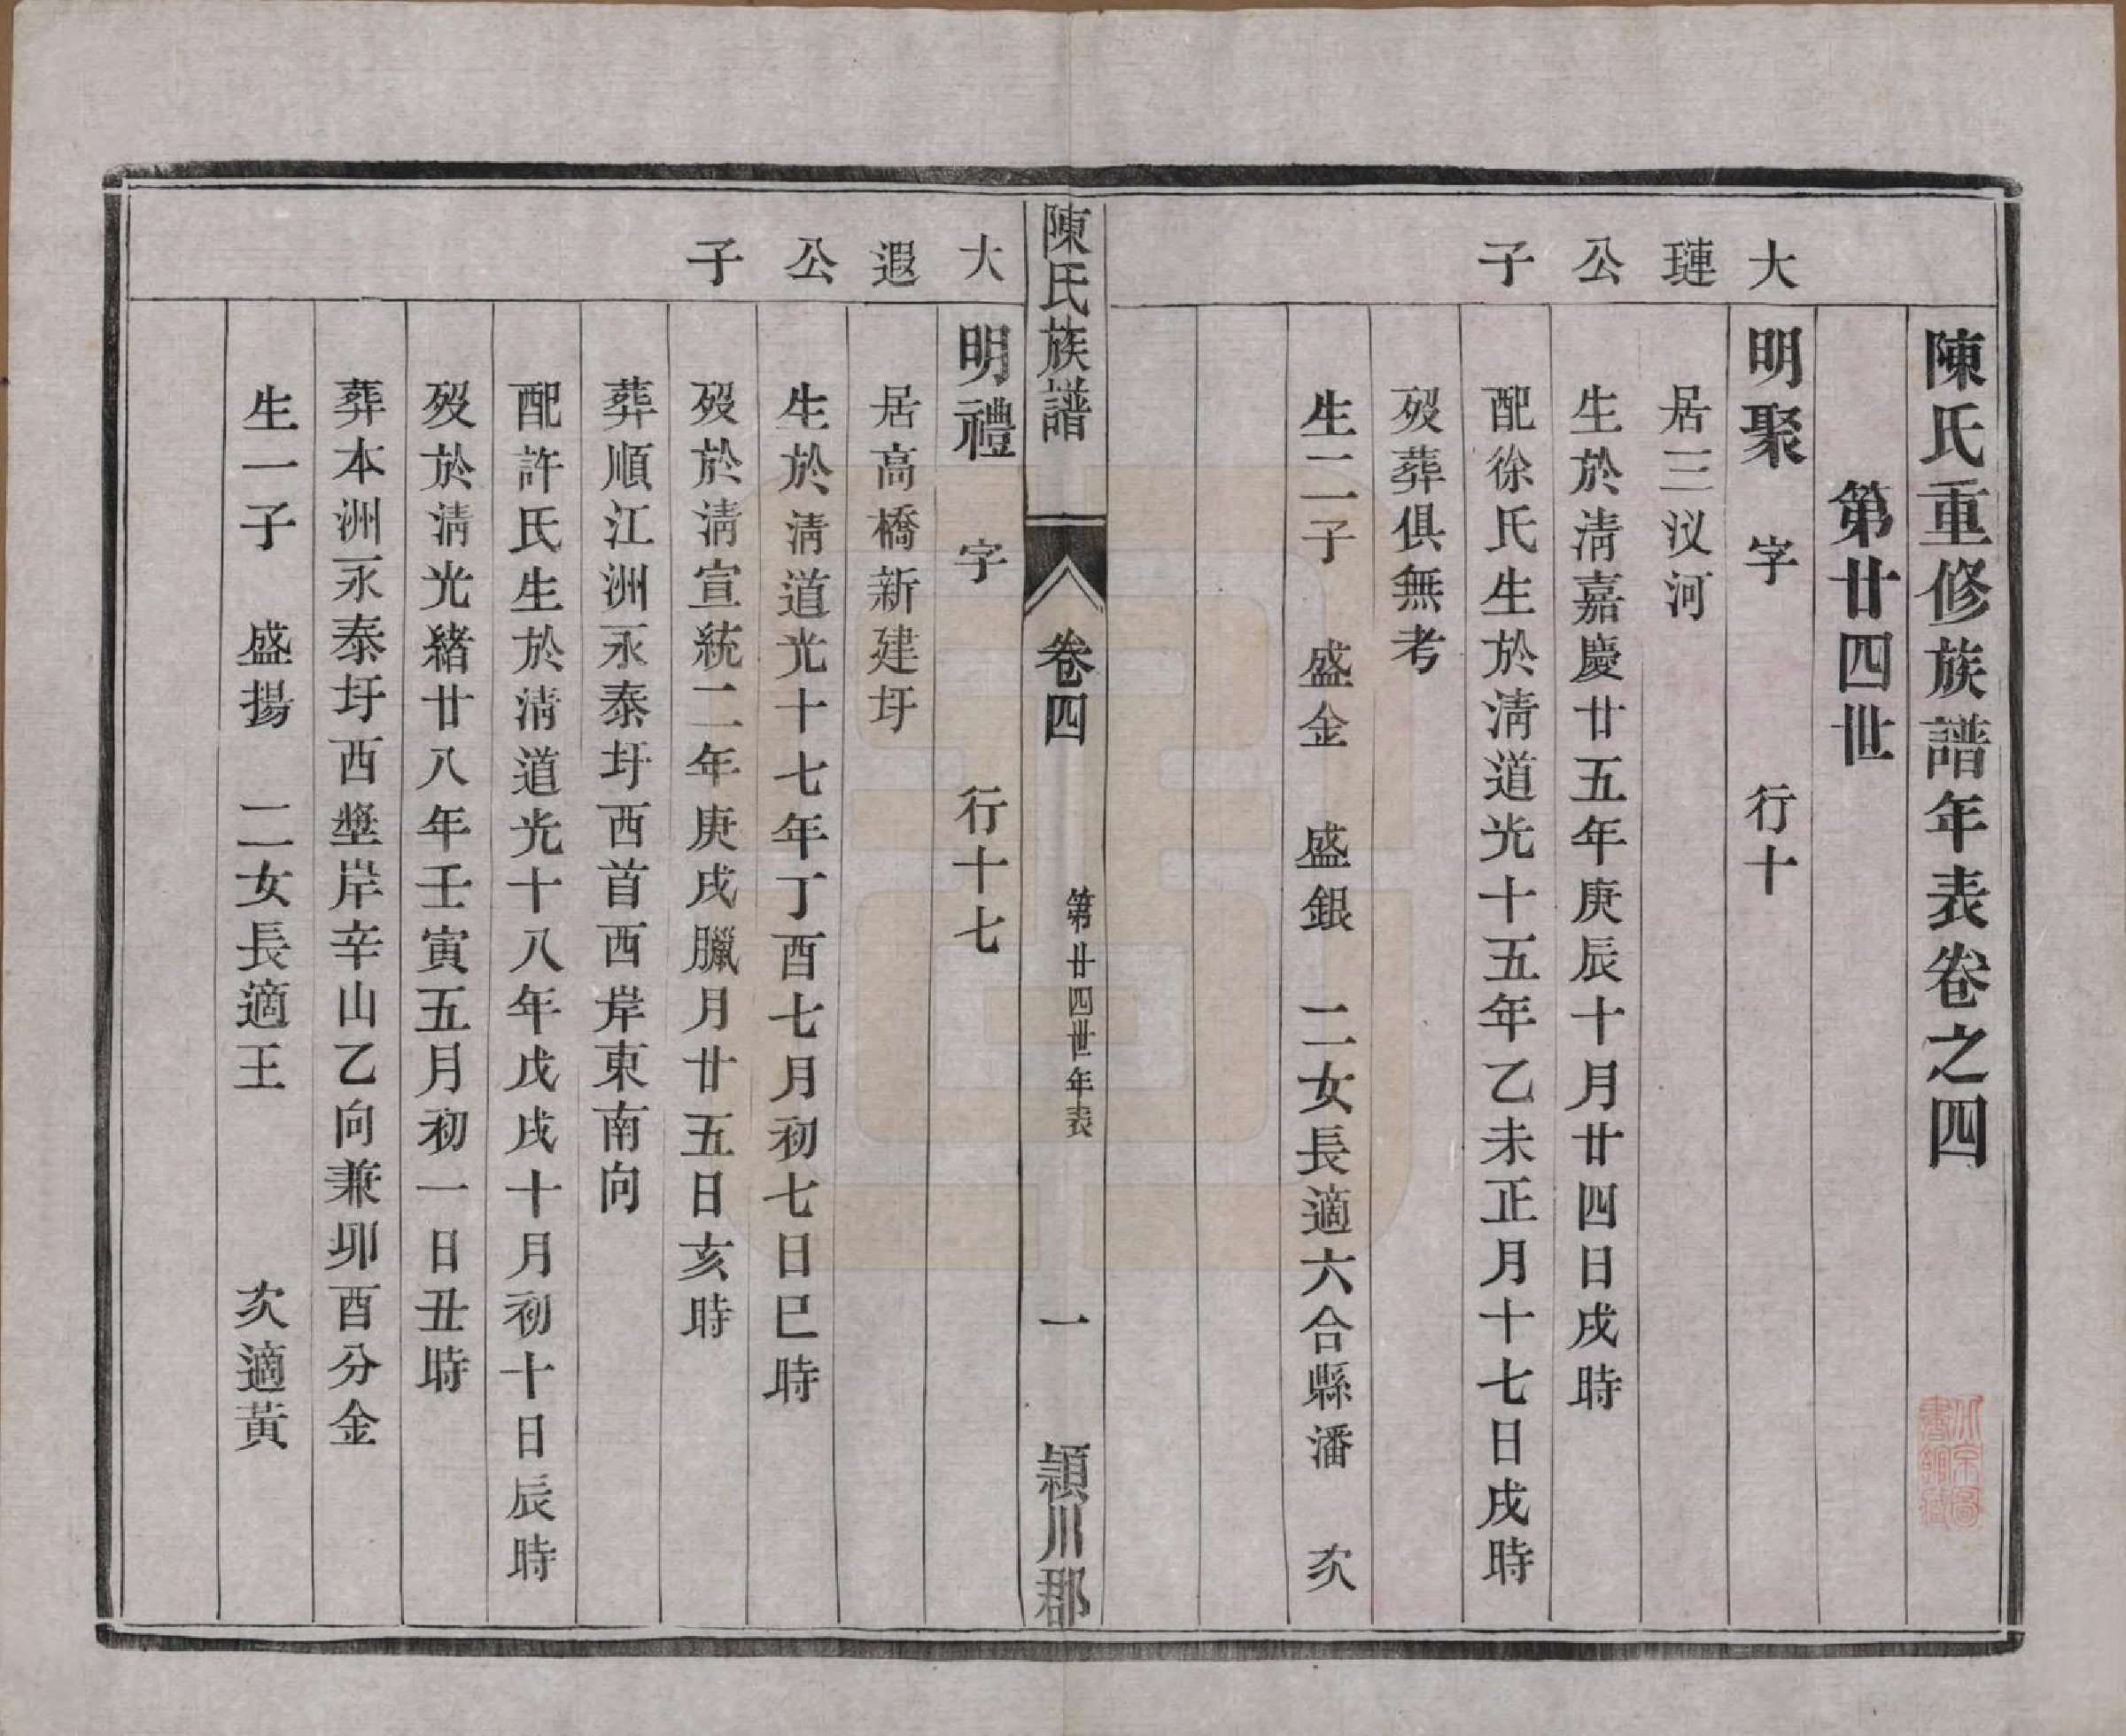 陳氏重修族譜年表卷之四
第廿四世
大璉公子
明聚　字　行十
居三汊河
生於淸嘉慶廿五年庚辰十月廿四日戌時
配徐氏生於淸道光十五年乙未正月十七日戌時
歿葬俱無考
生二子　盛金　盛銀　二女長適六合縣潘　次
陳氏族譜　卷四　第廿四世年表　一　潁川郡
大遐公子
明禮　字　行十七
居高橋新建圩
生於淸道光十七年丁酉七月初七日巳時
歿於淸宣統二年庚戌臘月廿五日亥時
葬順江洲永泰圩西首西岸東南向
配許氏生於淸道光十八年戊戌十月初十日辰時
歿於淸光緒廿八年壬寅五月初一日丑時
葬本洲永泰圩西壟岸辛山乙向兼卯酉分金
生一子　盛揚　二女長適王　次適黃